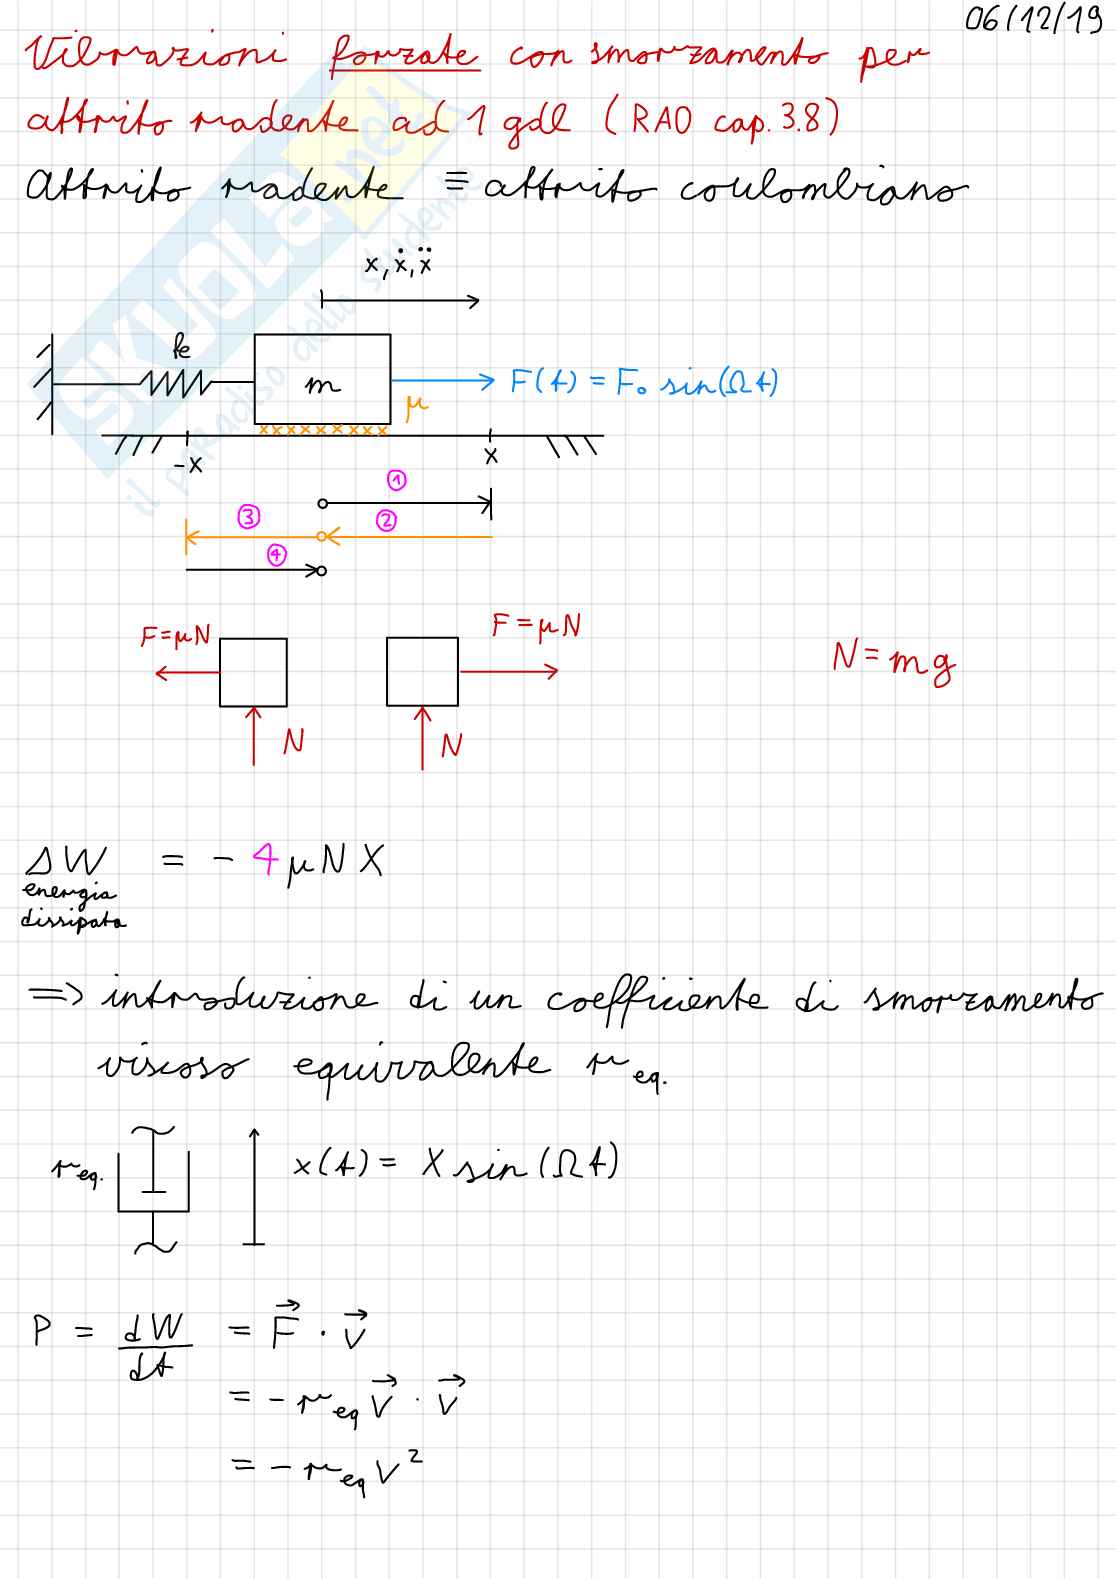 06/12/19
Vibrazioni forzate con smorzamento per
attrito radente ad 1 gdl (RAO cap. 3.8)
Attrito radente ≡ attrito coulombiano
x, ẋ, ẍ
k
m
F(t) = F₀ sin(Ωt)
μ
-x
x
①
③ ②
④
F=μN
F=μN
N=mg
N
N
ΔW = - 4 μ N X
energia
dissipata
=> introduzione di un coefficiente di smorzamento
viscoso equivalente r eq.
r eq.
x(t) = X sin(Ωt)
P = dW/dt = F⃗ · v⃗
= - r eq v⃗ · v⃗
= - r eq v²
SKUOLA.net
il paradiso dello studente